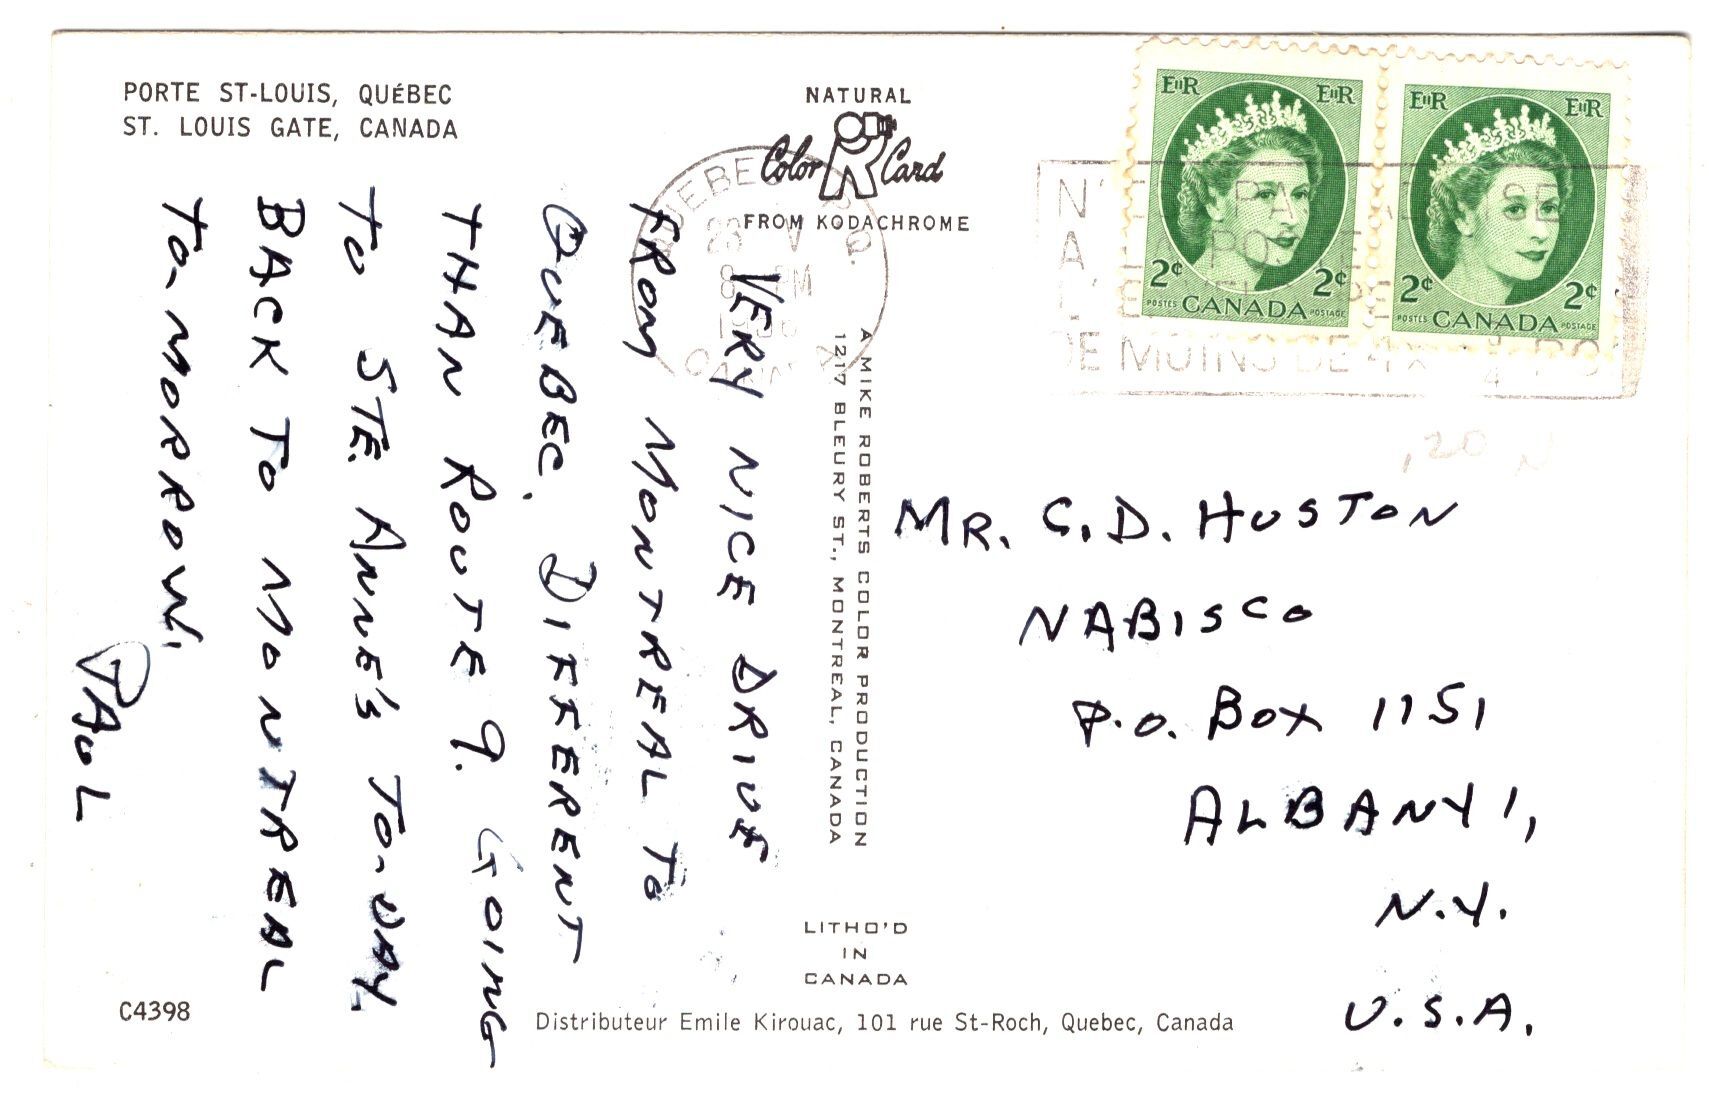 PORTE ST-LOUIS, QUéBEC
ST. LOUIS GATE, CANADA
NATURAL
Color R Card
FROM KODACHROME
QUEBEC P.Q.
V
8 PM
EIIR EIIR
2¢ 2¢
POSTES CANADA POSTAGE
EIIR EIIR
2¢ 2¢
POSTES CANADA POSTAGE
DE MOINS DE 4 X
VERY NICE DRIVE
FROM MONTREAL TO
QUEBEC, DIFFERENT
THAN ROUTE 9. GOING
TO STE. ANNE'S TO-DAY.
BACK TO MONTREAL
TO-MORROW.
PAUL
A MIKE ROBERTS COLOR PRODUCTION
1217 BLEURY ST., MONTREAL, CANADA
MR. C. D. HUSTON
NABISCO
P.O. BOX 1151
ALBANY 1,
N.Y.
U.S.A.
LITHO'D
IN
CANADA
C4398
Distributeur Emile Kirouac, 101 rue St-Roch, Quebec, Canada